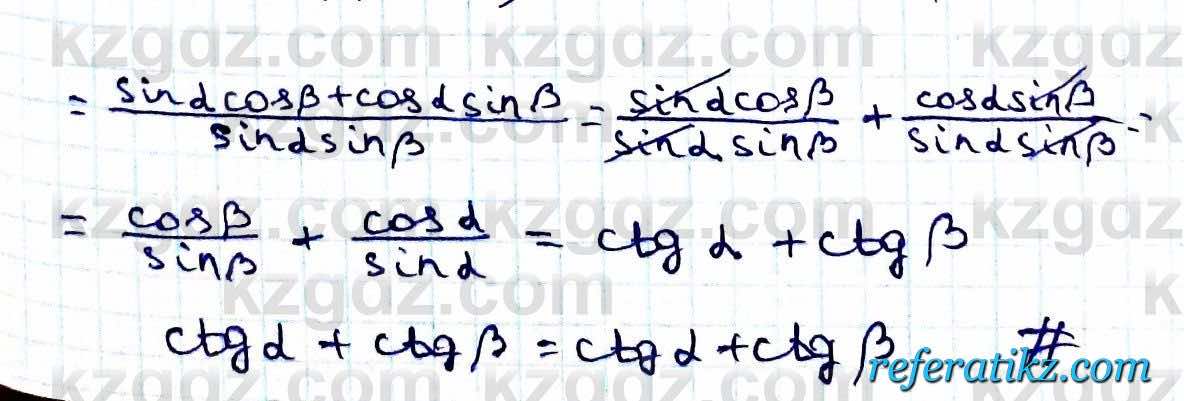 kzgdz.com kzgdz.com kzgdz.com
= (sinα cosβ + cosα sinβ)/(sinα sinβ) = (sinα cosβ)/(sinα sinβ) + (cosα sinβ)/(sinα sinβ) =
= cosβ/sinβ + cosα/sinα = ctg α + ctg β
kzgdz.com
ctg α + ctg β = ctg α + ctg β #
referatikz.com